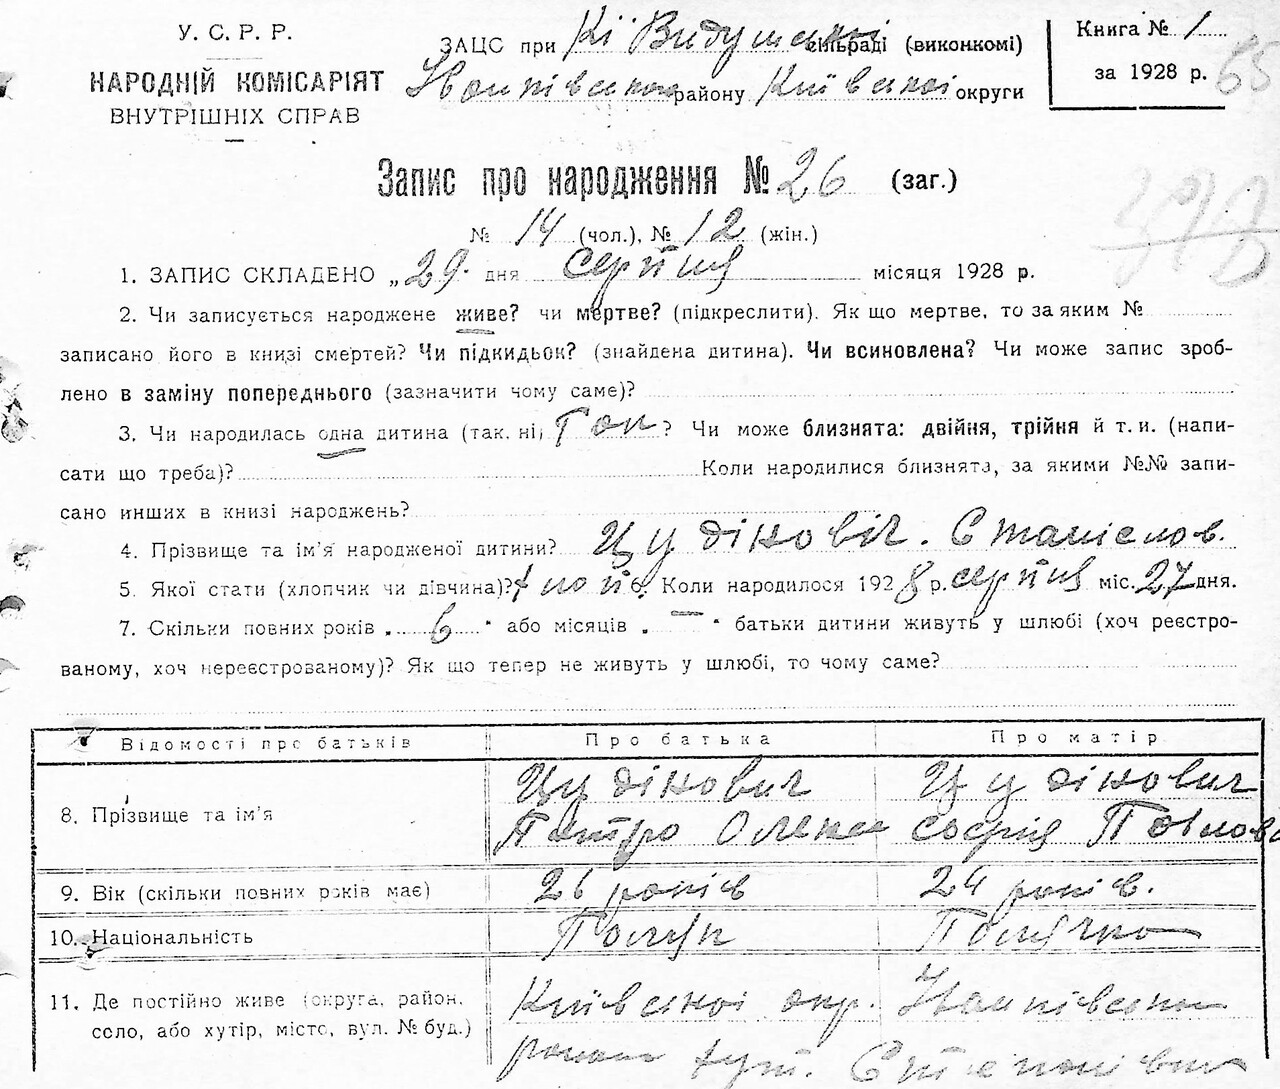 У. С. Р. Р.
НАРОДНІЙ КОМІСАРІЯТ
ВНУТРІШНІХ СПРАВ
ЗАЦС при сільраді (виконкомі)
Іванківського району Київської округи
Книга № 1
за 1928 р.
65
Запис про народження № 26 (заг.)
№ 14 (чол.), № 12 (жін.)
1. ЗАПИС СКЛАДЕНО „29 дня серпня місяця 1928 р.
2. Чи записується народжене живе? чи мертве? (підкреслити). Як що мертве, то за яким №
записано його в книзі смертей? Чи підкидьок? (знайдена дитина). Чи всиновлена? Чи може запис зроб-
лено в заміну попереднього (зазначити чому саме)?
3. Чи народилась одна дитина (так. ні) Так? Чи може близнята: двійня, трійня й т. и. (напи-
сати що треба)? Коли народилися близнята, за якими №№ запи-
сано инших в книзі народжень?
4. Прізвище та ім'я народженої дитини? Цудіновіч. Станіслов.
5. Якої стати (хлопчик чи дівчина)? 6. Коли народилося 1928 р. серпня міс. 27 дня.
7. Скільки повних років „ 6 " або місяців „ — " батьки дитини живуть у шлюбі (хоч реєстро-
ваному, хоч нереєстрованому)? Як що тепер не живуть у шлюбі, то чому саме?
Відомості про батьків Про батька Про матір
8. Прізвище та ім'я Цудінович Цудінович
Петро Олекс Софія Павлова
9. Вік (скільки повних років має) 26 років 24 років.
10. Національність Поляк Полячка
11. Де постійно живе (округа, район, Київської окр. Іванківського
село, або хутір, місто, вул. № буд.) району хут.